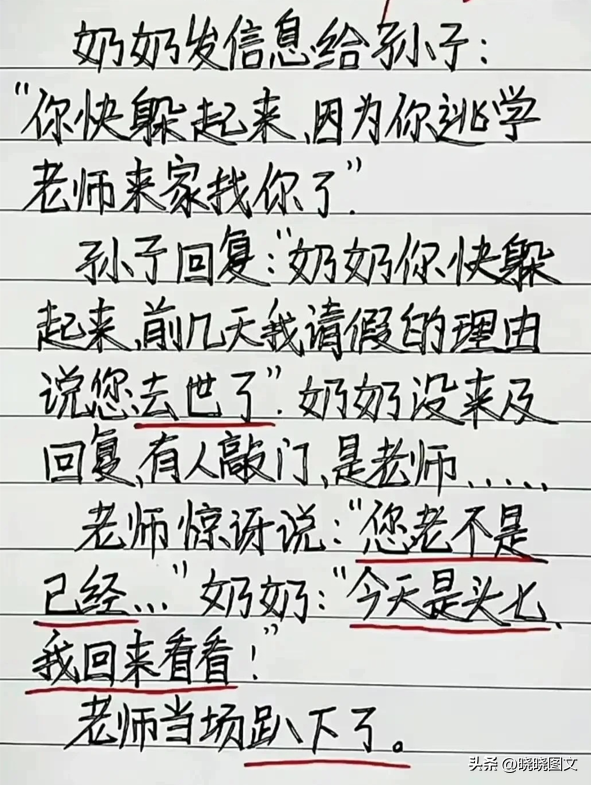 奶奶发信息给孙子:
"你快躲起来,因为你逃学
老师来家找你了".
孙子回复:"奶奶你快躲
起来,前几天我请假的理由
说您去世了".奶奶没来及
回复,有人敲门,是老师.....
老师惊讶说:"您老不是
已经..."奶奶:"今天是头七、
我回来看看!"
老师当场趴下了。
头条 @晓晓图文